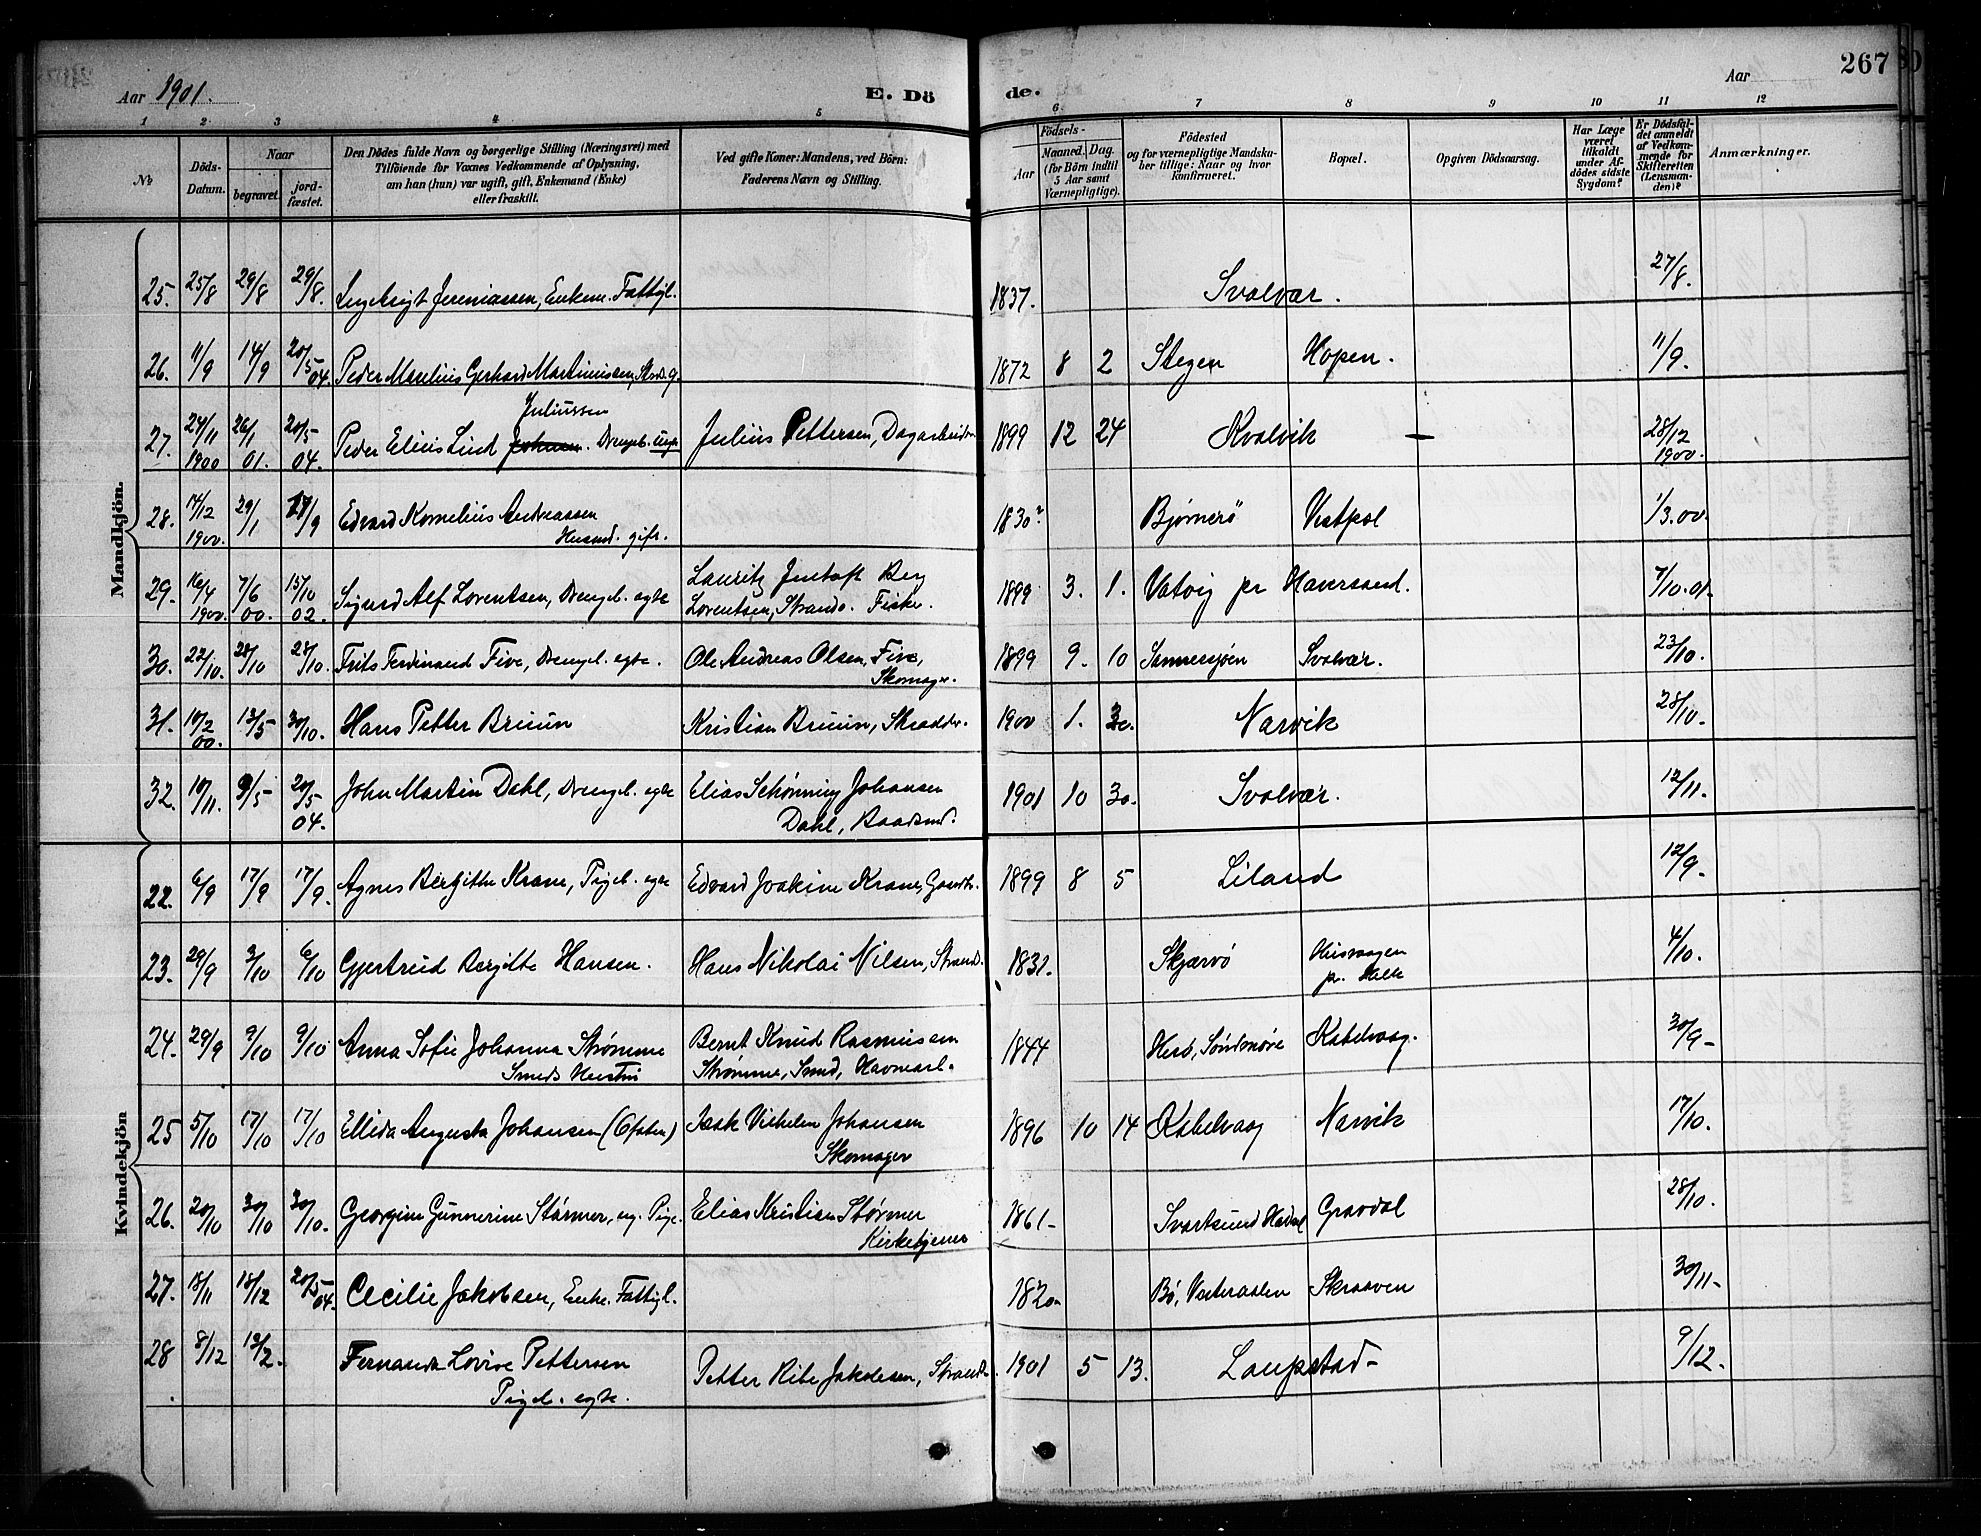 Aar 1901. E. Dö de. Aar 267
1 2 3 4 5 6 7 8 9 10 11 12
№ Döds-Datum. Naar begravet. jord-fæstet. Den Dödes fulde Navn og borgerlige Stilling (Næringsvei) med Tilföiende for Voxnes Vedkommende af Oplysning, om han (hun) var ugift, gift, Enkemand (Enke) eller fraskilt. Ved gifte Koner: Mandens, ved Börn: Faderens Navn og Stilling. Födsels- Aar Maaned. Dag. (for Börn indtil 5 Aar samt Værnepligtige). Födested og for værnepligtige Mandska-ber tillige: Naar og hvor Konfirmeret. Bopæl. Opgiven Dödsaarsag. Har Læge været tilkaldt under Af-dödes sidste Sygdom? Er Dödsfal-det anmeldt af Vedkom-mende for Skifteretten (Lensman-den)? Anmærkninger.
Mandkjön.
25. 25/8 29/8 29/8. Jeremiassen, Enkem. Fattigl. 1837. Svolvær. 27/8.
26. 11/9 14/9 20/5 04. Peder Marelius Gerhard Martinussen, 1872 8 2 Stegen Hopen. 11/9.
Juliussen
27. 24/11 1900 26/1 01. 20/5 04. Peder Elius Lind Drengeb. Julius Pettersen, Dagarbeider 1899 12 24 Kvalvik — 28/12 1900.
28. 14/12 1900. 29/1 17/9 Edvard Kornelius Andreassen 1830? Bjørnerö Vestpol 1/3.00.
Husmd. gift.
29. 16/4 1900. 7/6 00. 15/10 02. Sigurd Alf Lorentsen, Drengeb. egte Lauritz Jentoft Berg 1899 3. 1. Vatvig pr Haversand. 7/10.01.
Lorentsen, Strands. Fisker.
30. 22/10. 28/10 28/10. Frits Ferdinand Five, Drengeb. egte. Ole Andreas Olsen, Five, 1899 9. 10 Sannessjøen Svolvær. 23/10.
Skomager.
31. 10/2 00. 13/5 30/10. Hans Petter Bruun Kristian Bruun, Skrædder. 1900 1. 30. Narvik 28/10.
32. 10/11. 9/5 20/5 04. John Martin Dahl, Drengeb. egte Elias Schønning Johansen 1901 10 30. Svolvær. 12/11.
Dahl, Baadsmd.
Kvindekjön
22. 6/9 17/9 17/9. Agnes Bergitte Krane, Pigeb. egte Edvard Joakim Krane, Gaardb. 1899 8 5 Liland 12/9.
23. 29/9 2/10 6/10 Gjertrud Bergitte Hansen. Hans Nikolai Nilsen, Strands. 1831. Skjærvö Husvaagen 4/10.
24. 29/9 9/10 9/10 Anna Sofie Johanna Strømme Bernt Knud Rasmussen 1844 Herö, Søndmøre Kabelvaag. 30/9
Smeds Hustru Strømme, Smed, Havnearb.
25 5/10 17/10 17/10 Ellida Augusta Johansen (Ofoten) Isak Vilhelm Johansen 1896 10 14 Kabelvaag Narvik 17/10.
Skomager
26. 20/10 30/10 30/10. Georgine Gunnerine Størmer, ug. Pige. Elias Kristian Størmer 1861 Svartsund Gravdal 28/10.
Kirketjener
27. 18/11 18/12 20/5 04. Cecilie Jakobsen, Enke. Fattigl. 1820 Bö, Vesteraalen Skraaven 30/11
28 8/12 12/2. Fernanda Lovise Pettersen Petter Ribe Jakobsen, Strands. 1901 5 13. Laupstad 9/12.
Pigeb. egte.